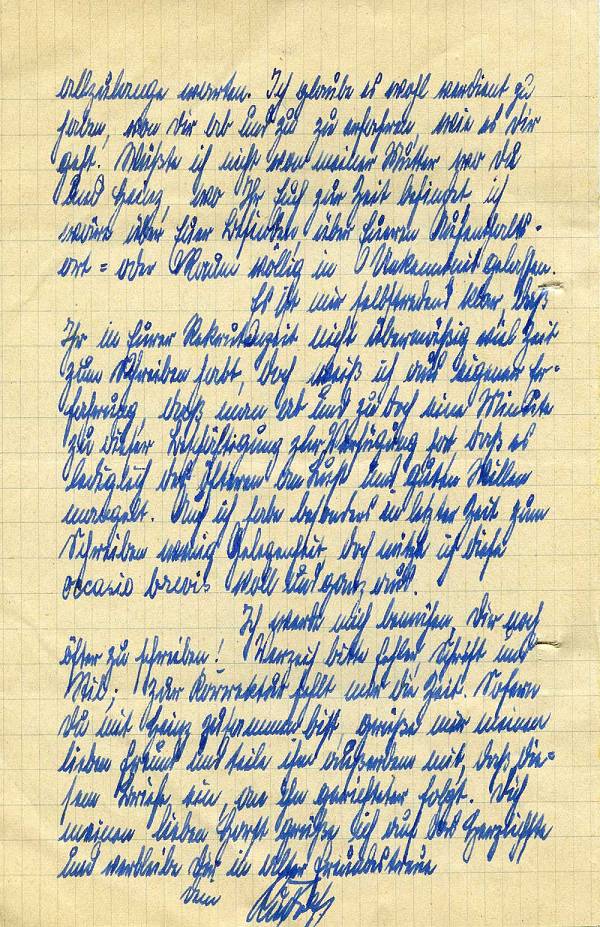 allzulange warten. Ich glaube es wohl verdient zu
haben, von dir ab und zu zu erfahren, wie es dir
geht. Wüßte ich nicht von meiner Mutter wo du
und Heinz, wo Ihr Euch zur Zeit befindet ich
wäre über Euer Befinden, über Eueren Aufenthalts-
ort = oder Raum völlig in Unkenntnis gelassen.
Es ist mir selbstredend klar, daß
Ihr in Eurer Rekrutenzeit nicht übermäßig viel Zeit
zum Schreiben habt, doch weiß ich aus eigener Er-
fahrung, daß man ab und zu doch eine Minute
zu dieser Beschäftigung zur Verfügung hat daß es
lediglich des Öfteren an Lust und guten Willen
mangelt. Auch ich habe besonders in letzter Zeit zum
Schreiben wenig Gelegenheit, doch nütze ich diese
occasio brevis voll und ganz aus.
Ich werde mich bemühen, Dir noch
öfter zu schreiben! Verzeih bitte Fehler Schrift und
Stil; zur Korrektur fehlt mir die Zeit. Sofern
Du mit Heinz zusammen bist, grüße mir meinen
lieben Freund und teile ihm außerdem mit, daß die-
sem Briefe ein, an Ihn gerichteter folgt. Dich
meinen lieben Horst grüße ich auf das Herzlichste
und verbleibe Dir in alter Freundestreue
Dein Rudolf